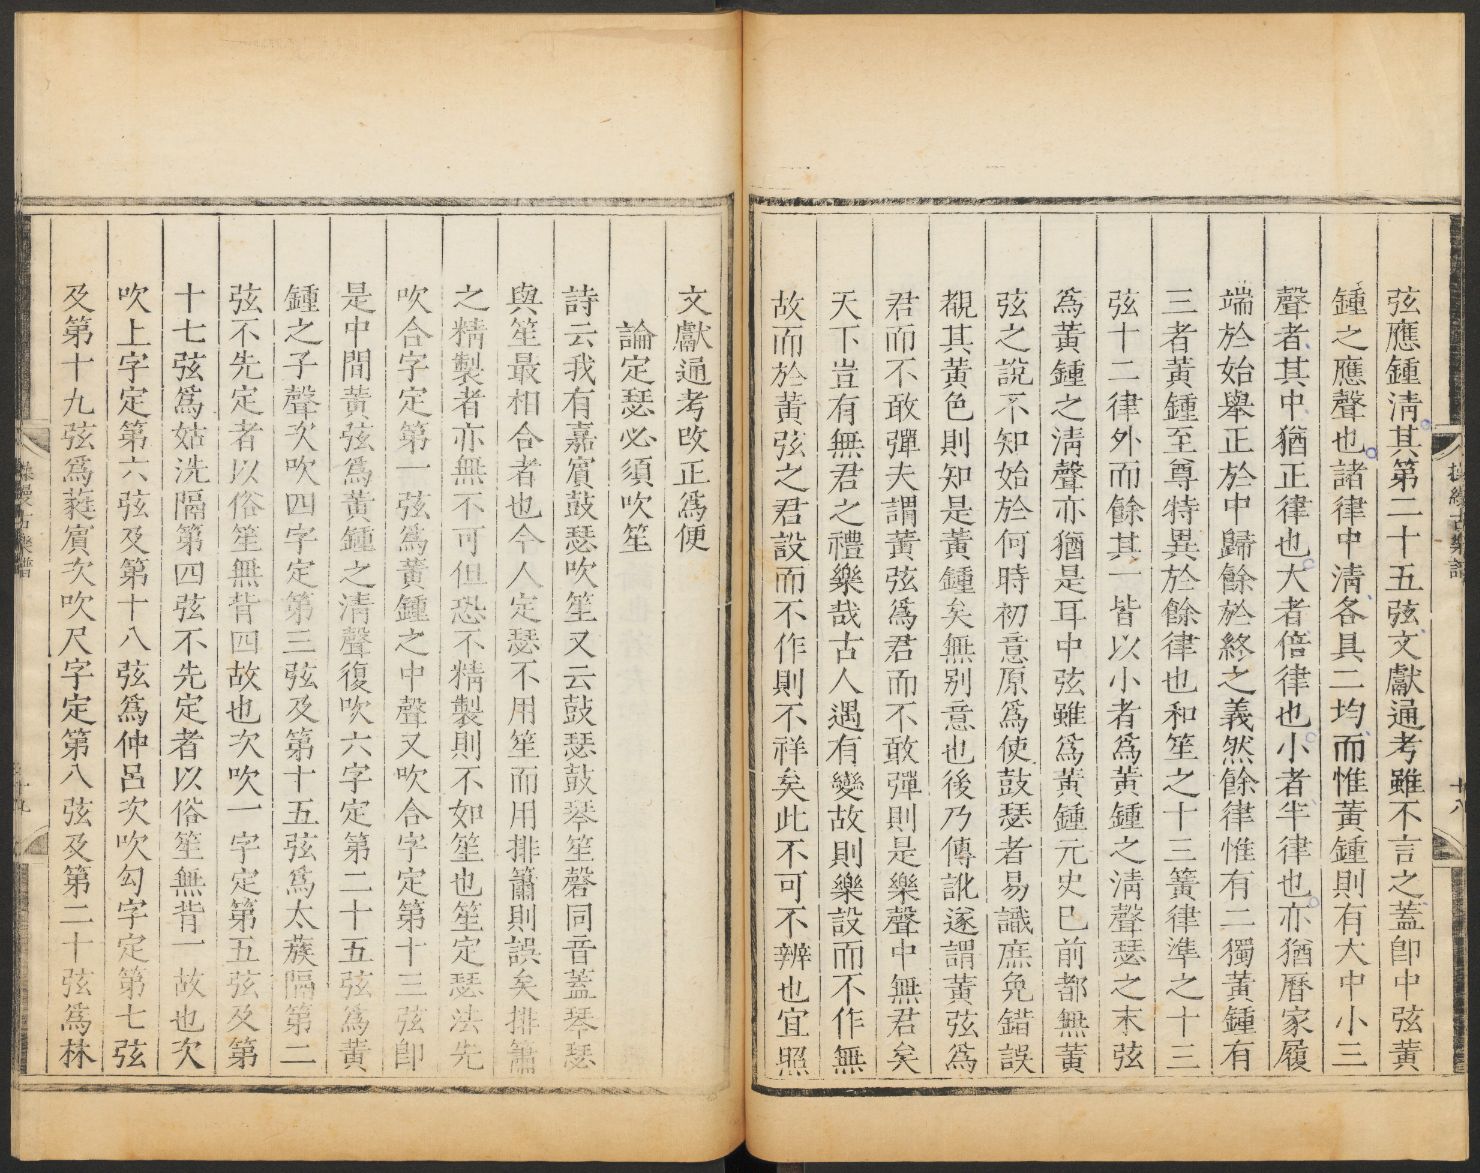 弦應鍾淸其第二十五弦文獻通考雖不言之蓋卽中弦黃
鍾之應聲也諸律中淸各具二均而惟黃鍾則有大中小三
聲者其中猶正律也大者倍律也小者半律也亦猶曆家履
端於始舉正於中歸餘於終之義然餘律惟有二獨黃鍾有
三者黃鍾至尊特異於餘律也和笙之十三簧律準之十三
弦十二律外而餘其一皆以小者爲黃鍾之淸聲瑟之末弦
爲黃鍾之淸聲亦猶是耳中弦雖爲黃鍾元史已前都無黃
弦之說不知始於何時初意原爲使鼓瑟者易識庶免錯誤
覩其黃色則知是黃鍾矣無别意也後乃傳訛遂謂黃弦爲
君而不敢彈夫謂黃弦爲君而不敢彈則是樂聲中無君矣
天下豈有無君之禮樂哉古人遇有變故則樂設而不作無
故而於黃弦之君設而不作則不祥矣此不可不辨也宜照
操縵古樂譜
十八
文獻通考改正爲便
論定瑟必須吹笙
詩云我有嘉賓鼓瑟吹笙又云鼓瑟鼓琴笙磬同音蓋琴瑟
與笙最相合者也今人定瑟不用笙而用排簫則誤矣排簫
之精製者亦無不可但恐不精製則不如笙也笙定瑟法先
吹合字定第一弦爲黃鍾之中聲又吹合字定第十三弦卽
是中間黃弦爲黃鍾之淸聲復吹六字定第二十五弦爲黃
鍾之子聲次吹四字定第三弦及第十五弦爲太蔟隔第二
弦不先定者以俗笙無背四故也次吹一字定第五弦及第
十七弦爲姑洗隔第四弦不先定者以俗笙無背一故也次
吹上字定第六弦及第十八弦爲仲呂次吹勾字定第七弦
及第十九弦爲蕤賓次吹尺字定第八弦及第二十弦爲林
操縵古樂譜
十九